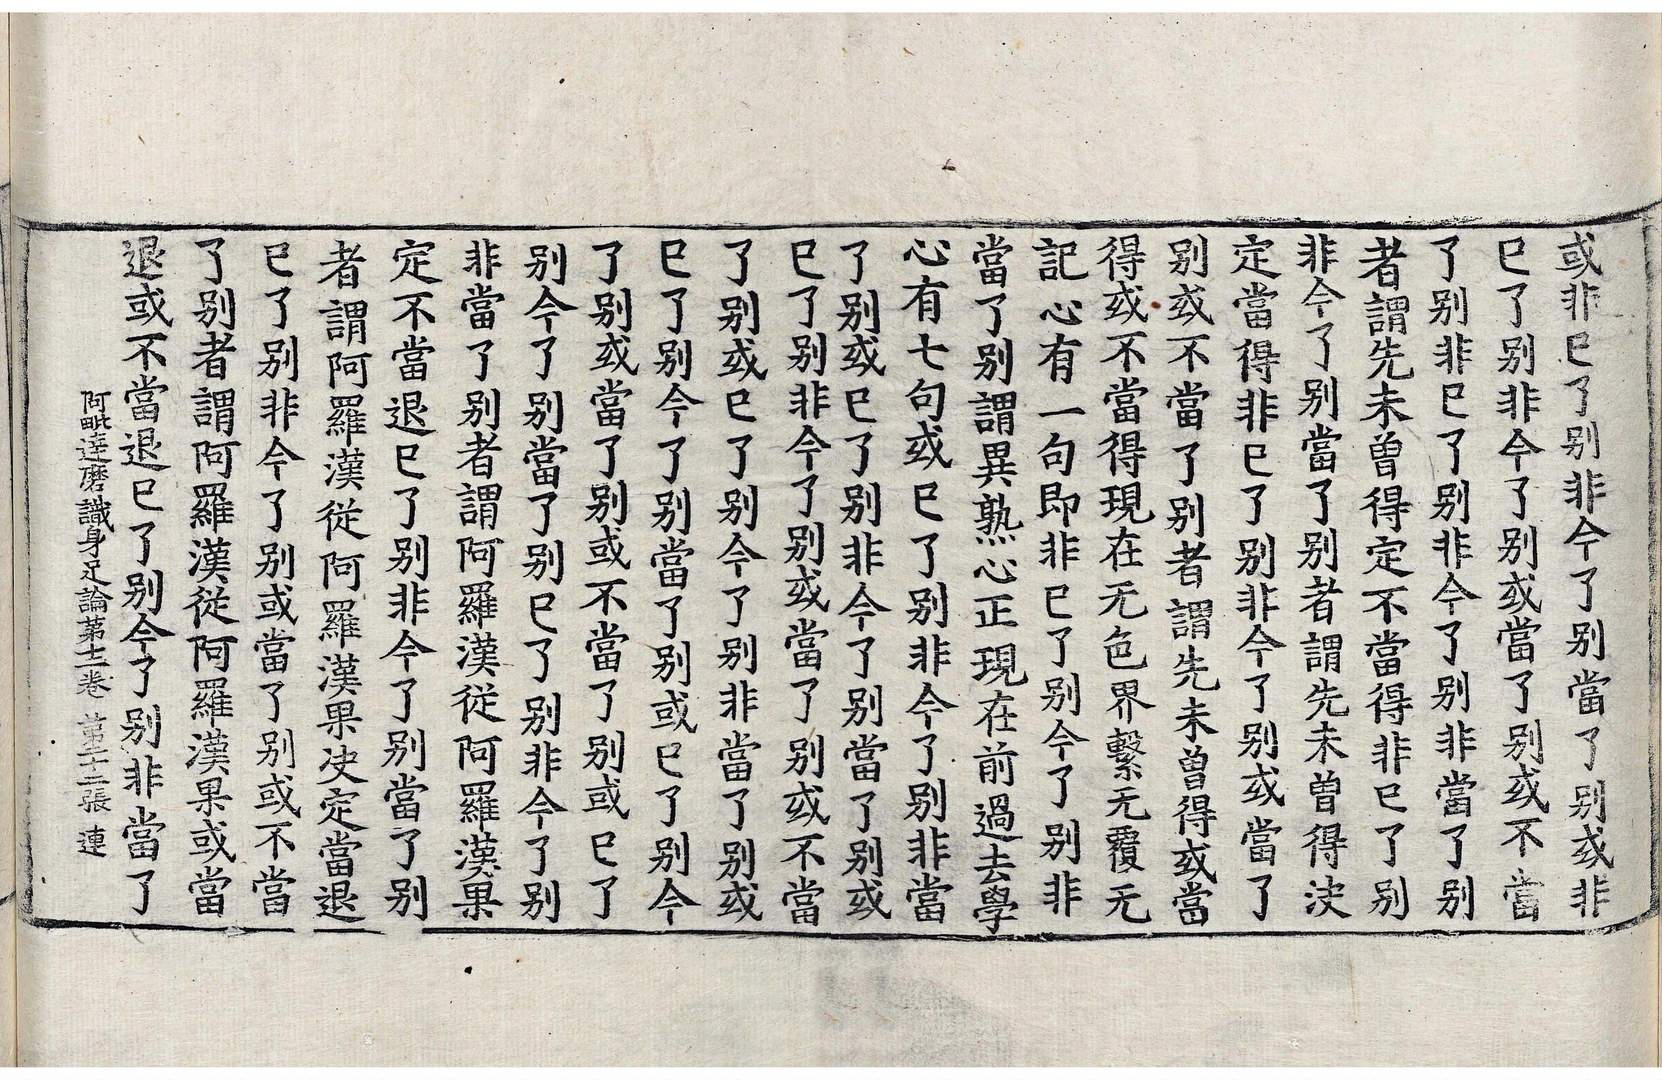 或非已了别非今了别當了别或非
已了别非今了别或當了别或不當
了别非已了别非今了别非當了别
者謂先未曾得定不當得非已了别
非今了别當了别者謂先未曾得决
定當得非已了别非今了别或當了
别或不當了别者謂先未曾得或當
得或不當得現在无色界繫无覆无
記心有一句即非已了别今了别非
當了别謂異熟心正現在前過去學
心有七句或已了别非今了别非當
了别或已了别非今了别當了别或
已了别非今了别或當了别或不當
了别或已了别今了别非當了别或
已了别今了别當了别或已了别今
了别或當了别或不當了别或已了
别今了别當了别已了别非今了别
非當了别者謂阿羅漢從阿羅漢果
定不當退已了别非今了别當了别
者謂阿羅漢從阿羅漢果决定當退
已了别非今了别或當了别或不當
了别者謂阿羅漢從阿羅漢果或當
退或不當退已了别今了别非當了
阿毗達磨識身足論第十二卷 第二十二張 連